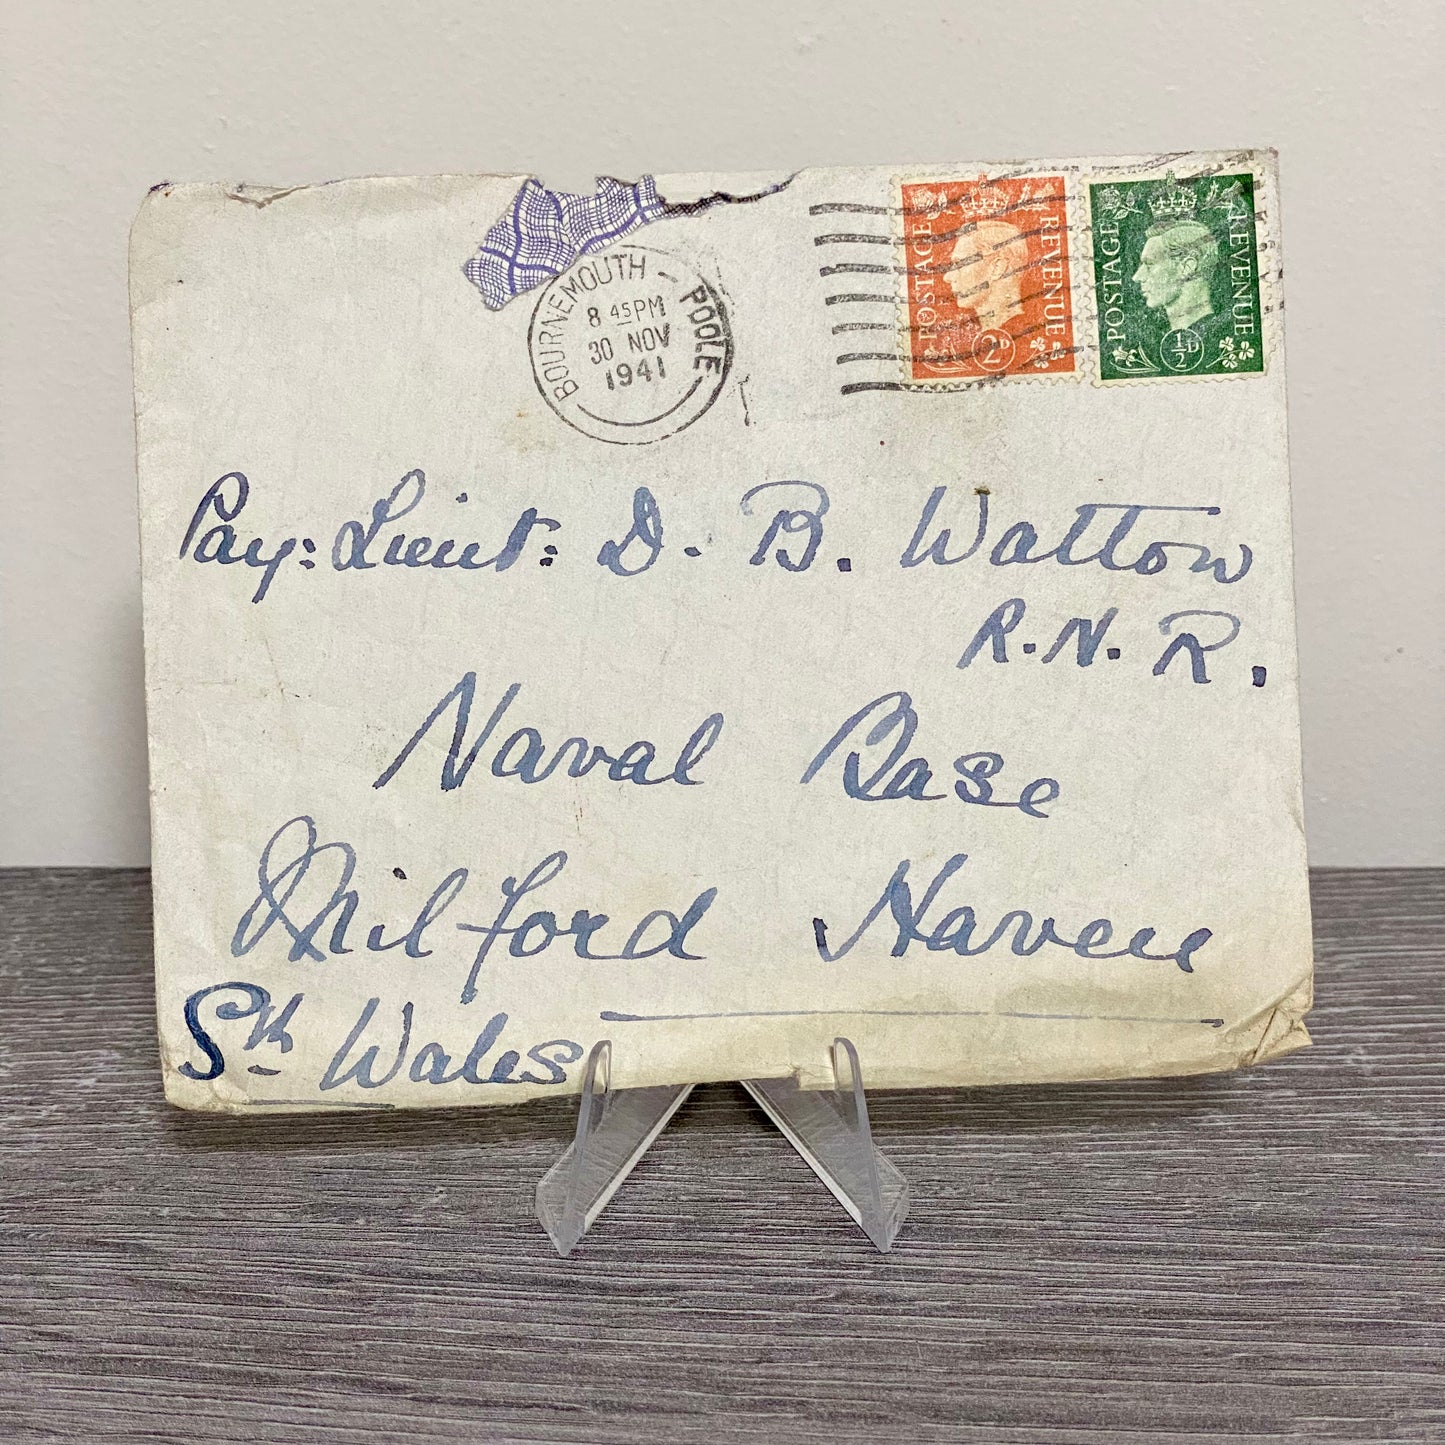 BOURNEMOUTH POOLE
8 45PM
30 NOV
1941
POSTAGE REVENUE
2D
POSTAGE REVENUE
½D
Pay: Lieut: D. B. Watton
R.N.R.
Naval Base
Milford Haven
Sth Wales